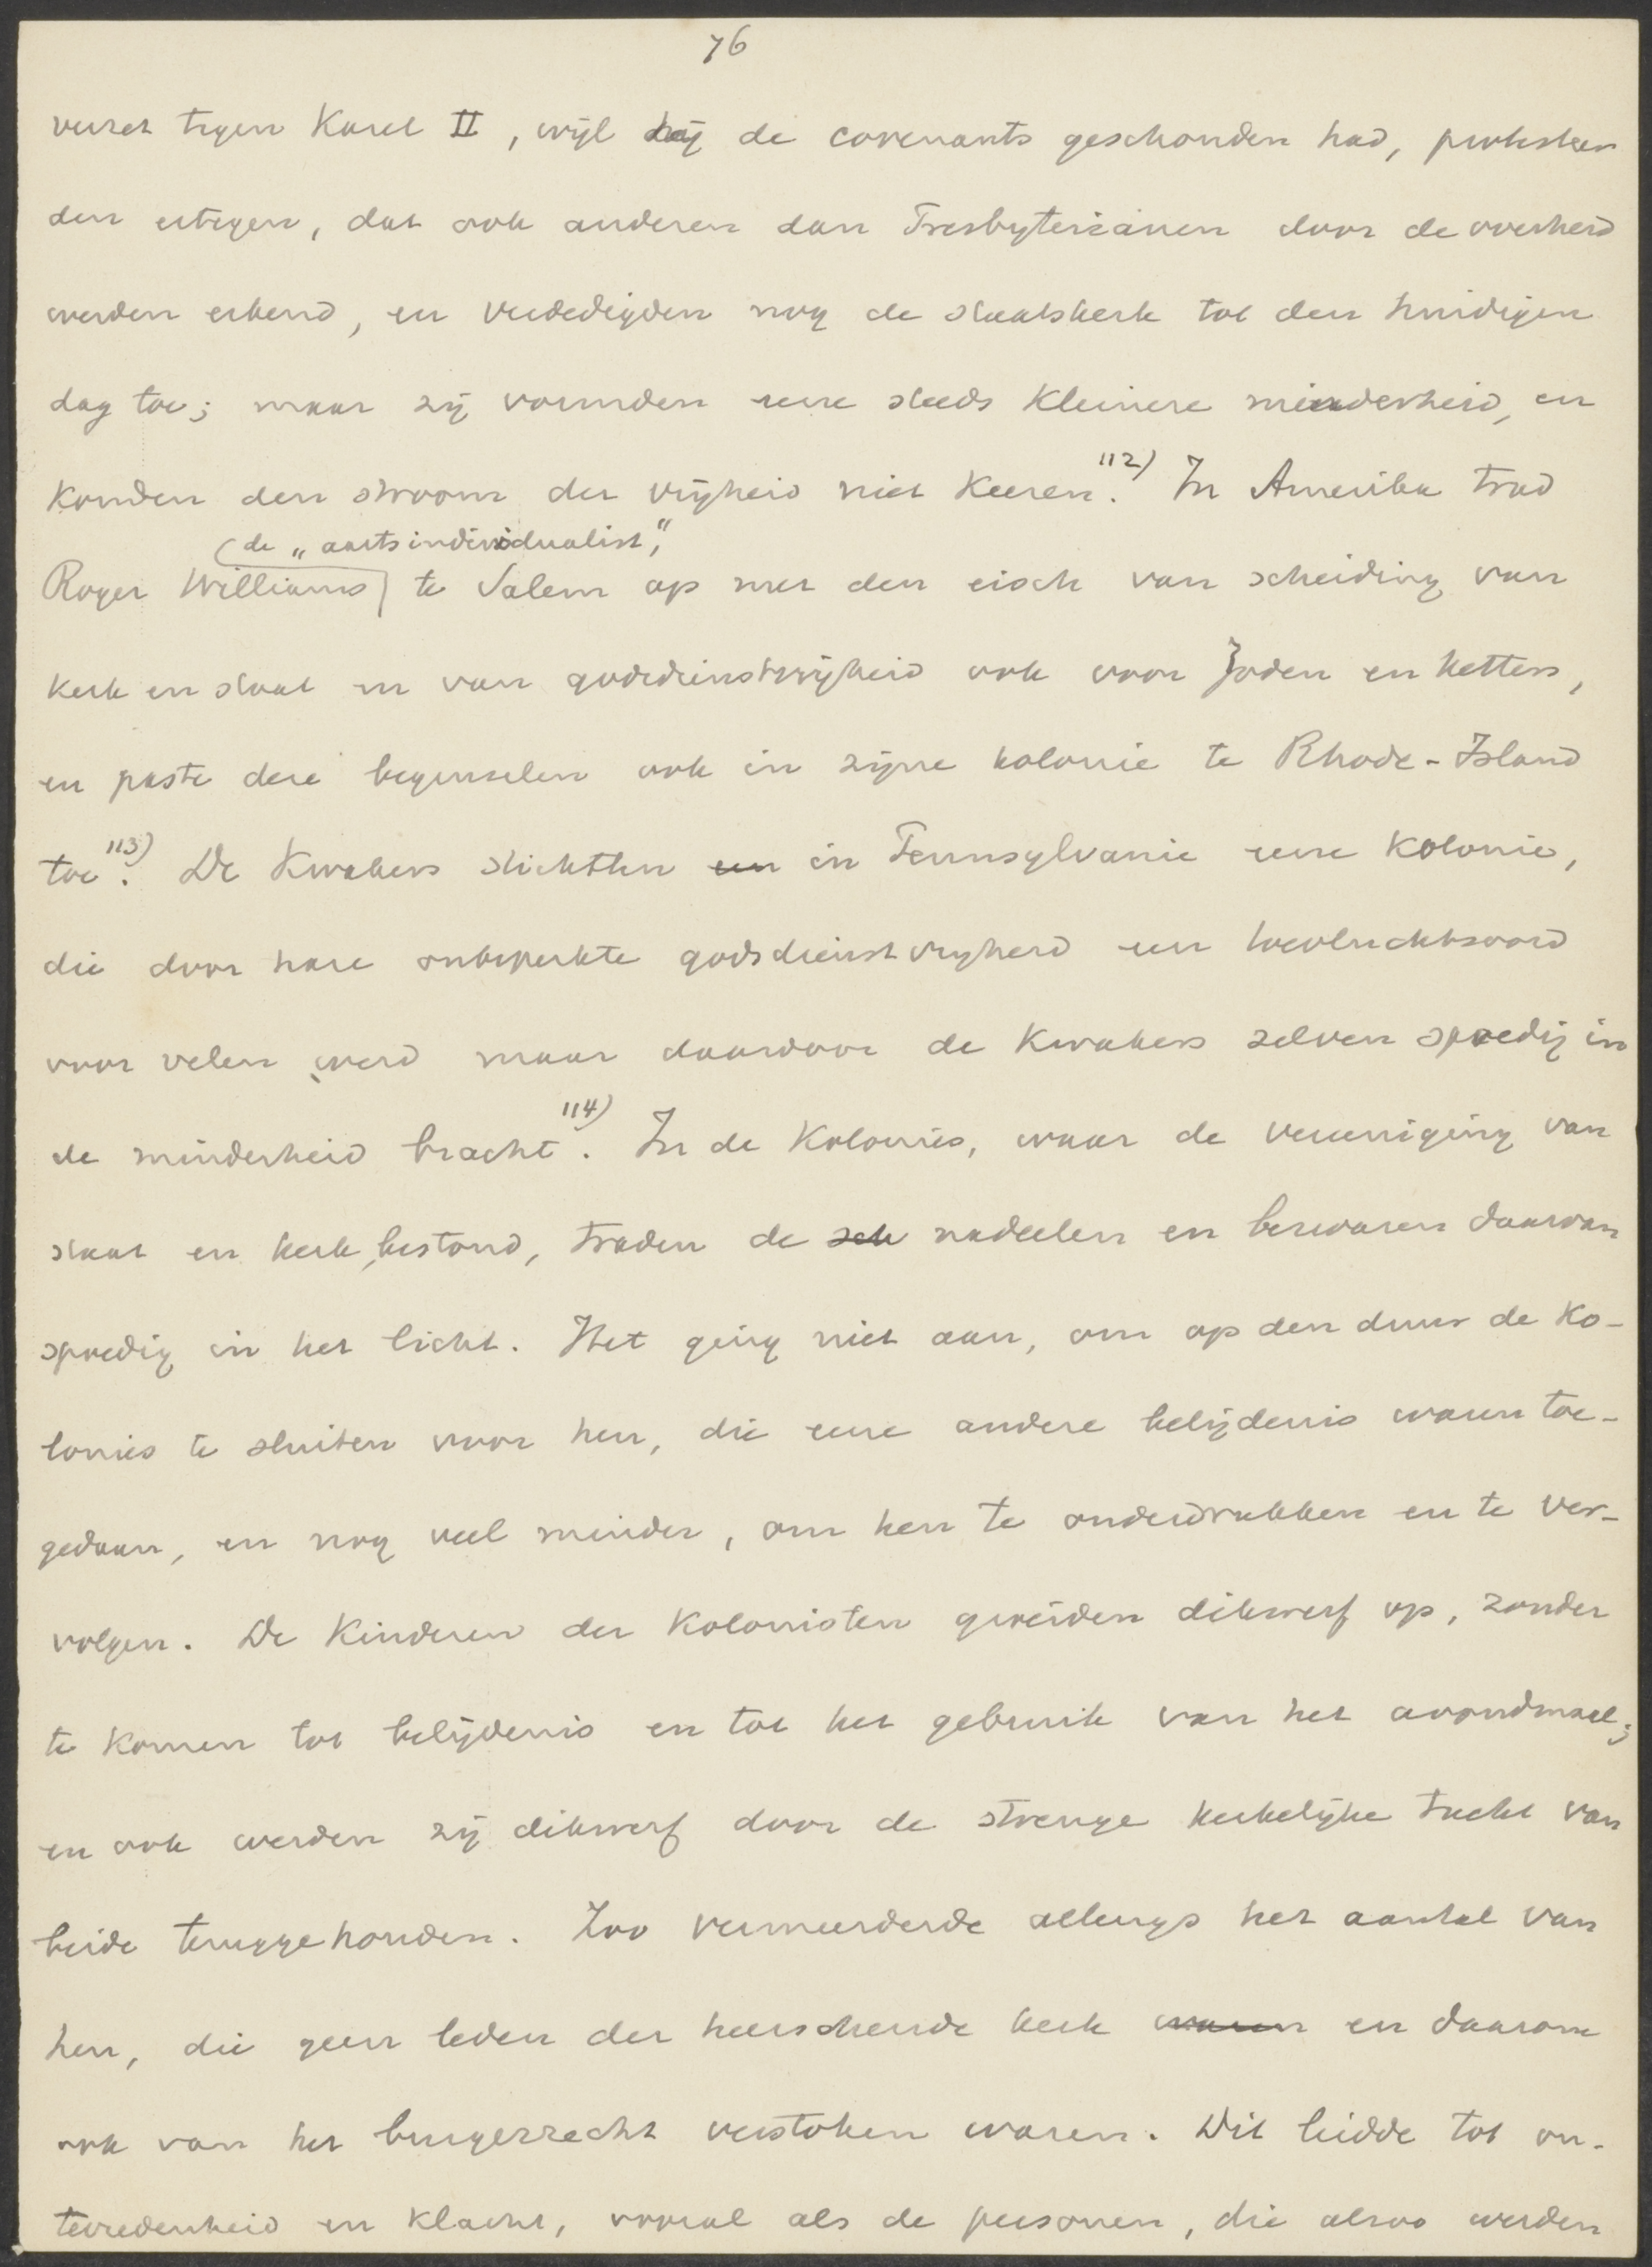 76
verzet tegen Karel II, wijl hij de covenants geschonden had, protesteer
den ertegen, dat ook anderen dan Presbyterianen door de overheid
werden erkend, en verdedigden nog de staatskerk tot den huidigen
dag toe; maar zij vormden eene steeds kleinere minderheid, en
konden den stroom der vrijheid niet keeren.112) In Amerika trad
(de „aartsindividualist",
Roger Williams) te Salem op met den eisch van scheiding van
kerk en staat en van godsdienstvrijheid ook voor Joden en ketters,
en paste deze beginselen ook in zijne kolonie te Rhode-Island
toe.113) De Kwakers stichtten een in Pennsylvanie eene kolonie,
die door hare onbeperkte godsdienstvrijheid een toevluchtsoord
voor velen werd maar daardoor de Kwakers zelven spoedig in
de minderheid bracht.114) In de Kolonies, waar de vereeniging van
staat en kerk bestond, traden de sch nadeelen en bezwaren daarvan
spoedig in het licht. Het ging niet aan, om op den duur de Ko-
lonies te sluiten voor hen, die eene andere belijdenis waren toe-
gedaan, en nog veel minder, om hen te onderdrukken en te ver-
volgen. De Kinderen der Kolonisten groeiden dikwerf op, zonder
te komen tot belijdenis en tot het gebruik van het avondmaal;
en ook werden zij dikwerf door de strenge kerkelijke tucht van
beide teruggehouden. Zoo vermeerderde allengs het aantal van
hen, die geen leden der heerschende kerk waren en daarom
ook van het burgerrecht verstoken waren. Dit leidde tot on-
tevredenheid en klacht, vooral als de personen, die alzoo werden